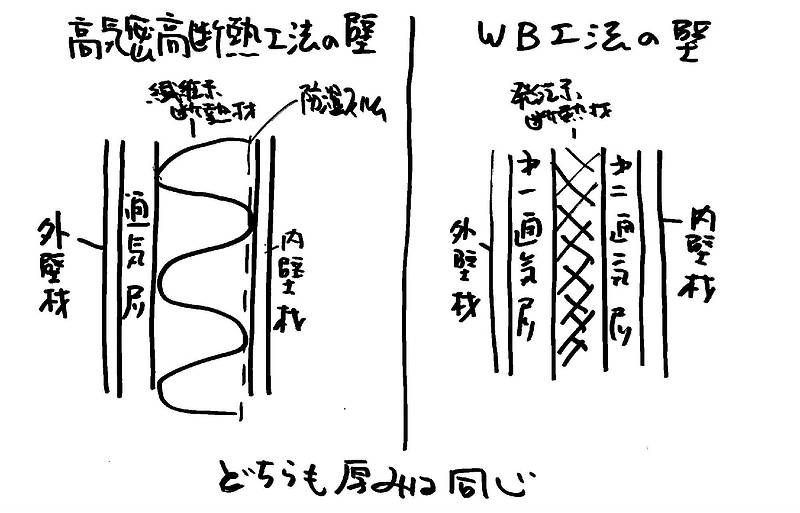 高気密高断熱工法の壁
繊維系
断熱材
防湿フィルム
外壁材
通気层
内壁材
WB工法の壁
発泡系
断熱材
外壁材
才一通気层
才二通気层
内壁材
どちらも厚みは同じ